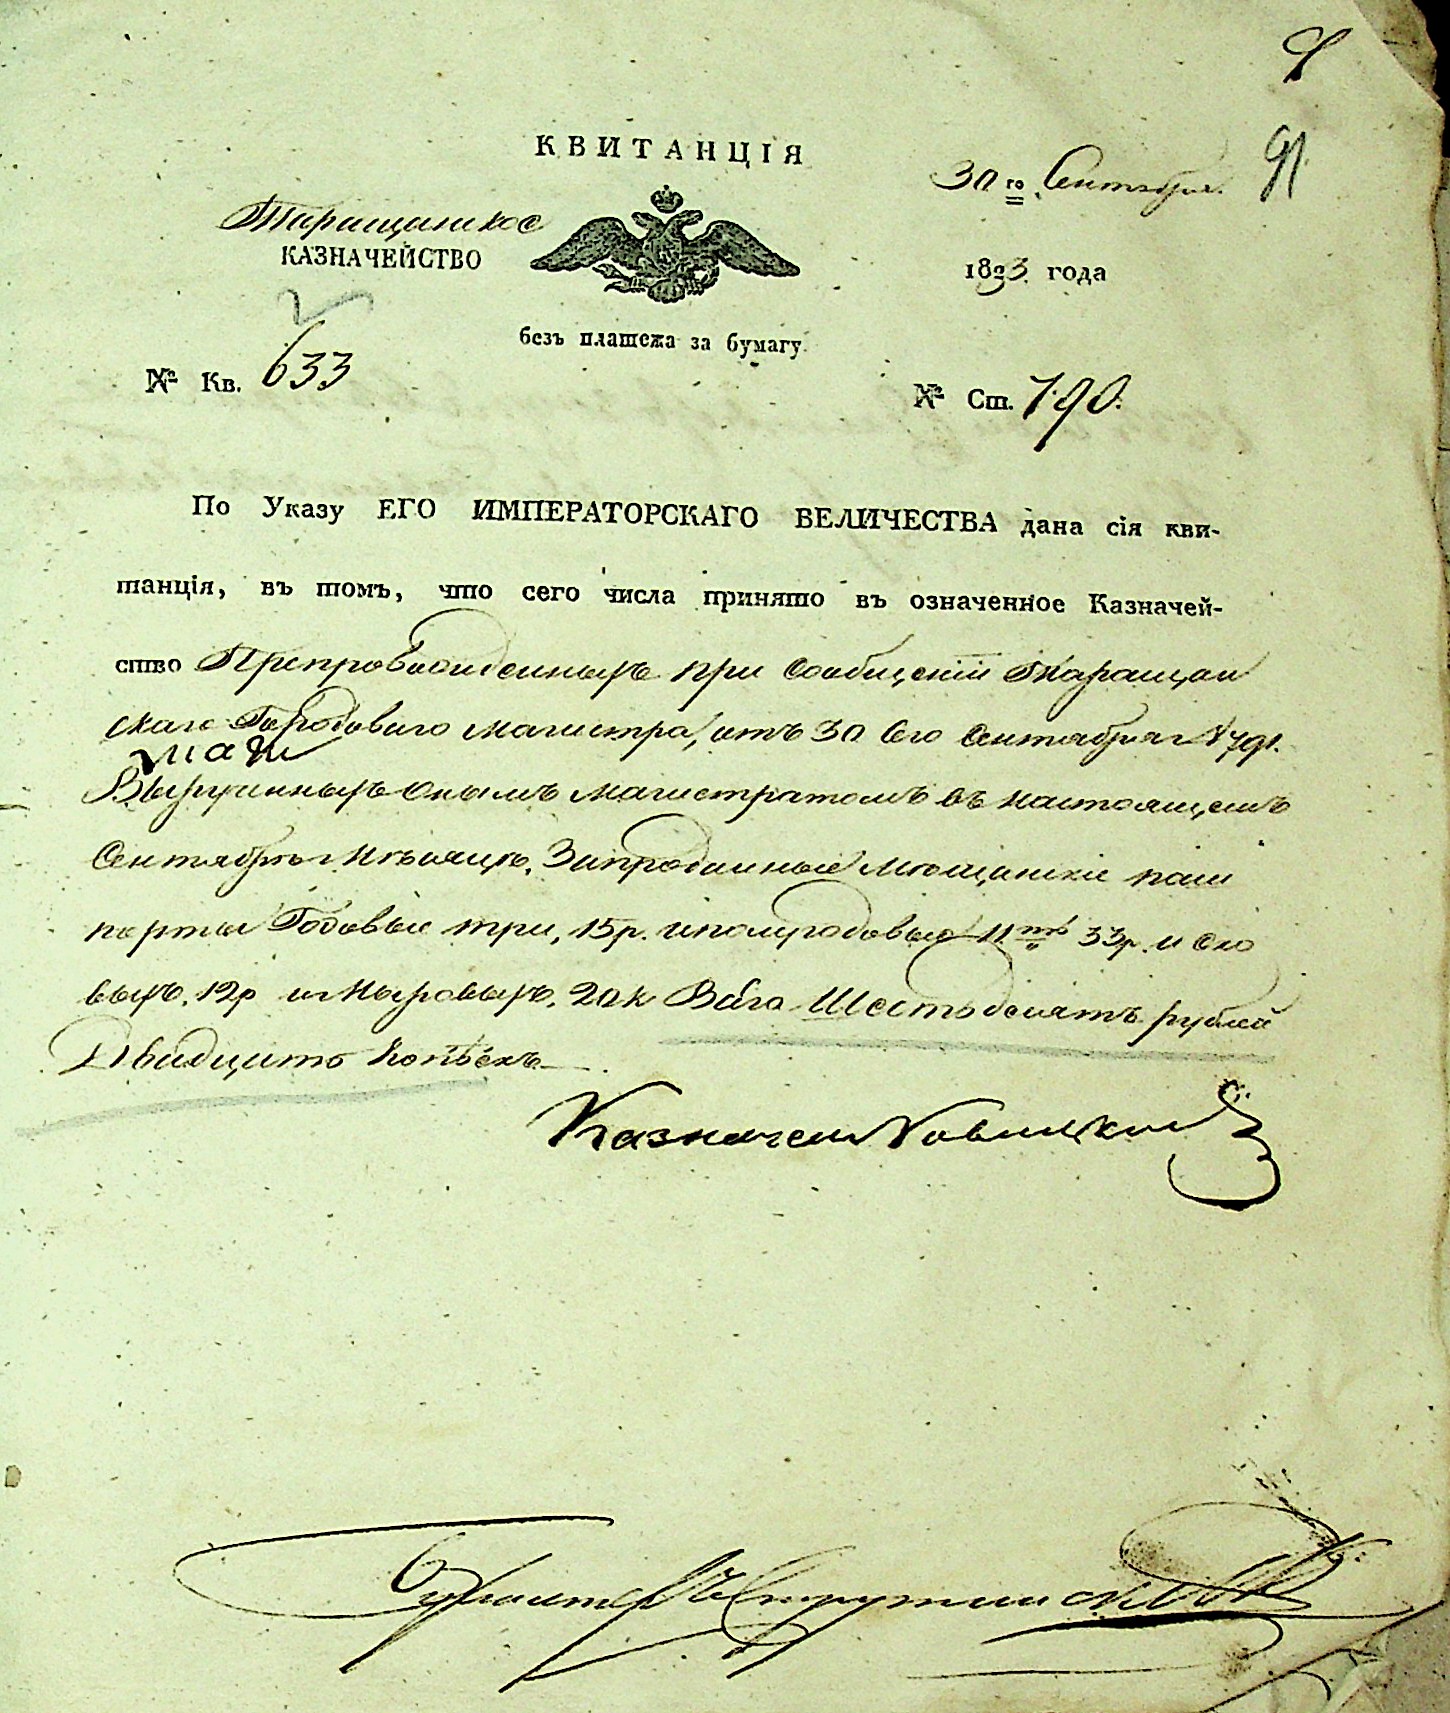 91
КВИТАНЦІЯ
30го Сентября.
Таращанское
КАЗНАЧЕЙСТВО
1823 года
безъ платежа за бумагу.
№ Кв. 633
№ Ст. 790.
По Указу ЕГО ИМПЕРАТОРСКАГО ВЕЛИЧЕСТВА дана сія кви-
танція, въ томъ, что сего числа принято въ означенное Казначей-
ство Препровожденныхъ при сообщеніи Таращан
скаго Городоваго магистра, отъ 30 Сего Сентября
Вырученныхъ Онымъ магистратомъ въ настоящемъ
Сентябрѣ Мѣсяцѣ, Запроданные Мѣщанскіе паш
порты Годовые три, 15р. иполугодовые 11ть 33р. и
выхъ. 12р 20к Всего Шестьдесятъ рублей
Двадцать Копѣекъ
Казначей